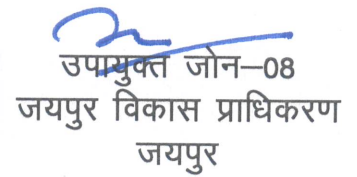 उपायुक्त जोन–08
जयपुर विकास प्राधिकरण
जयपुर